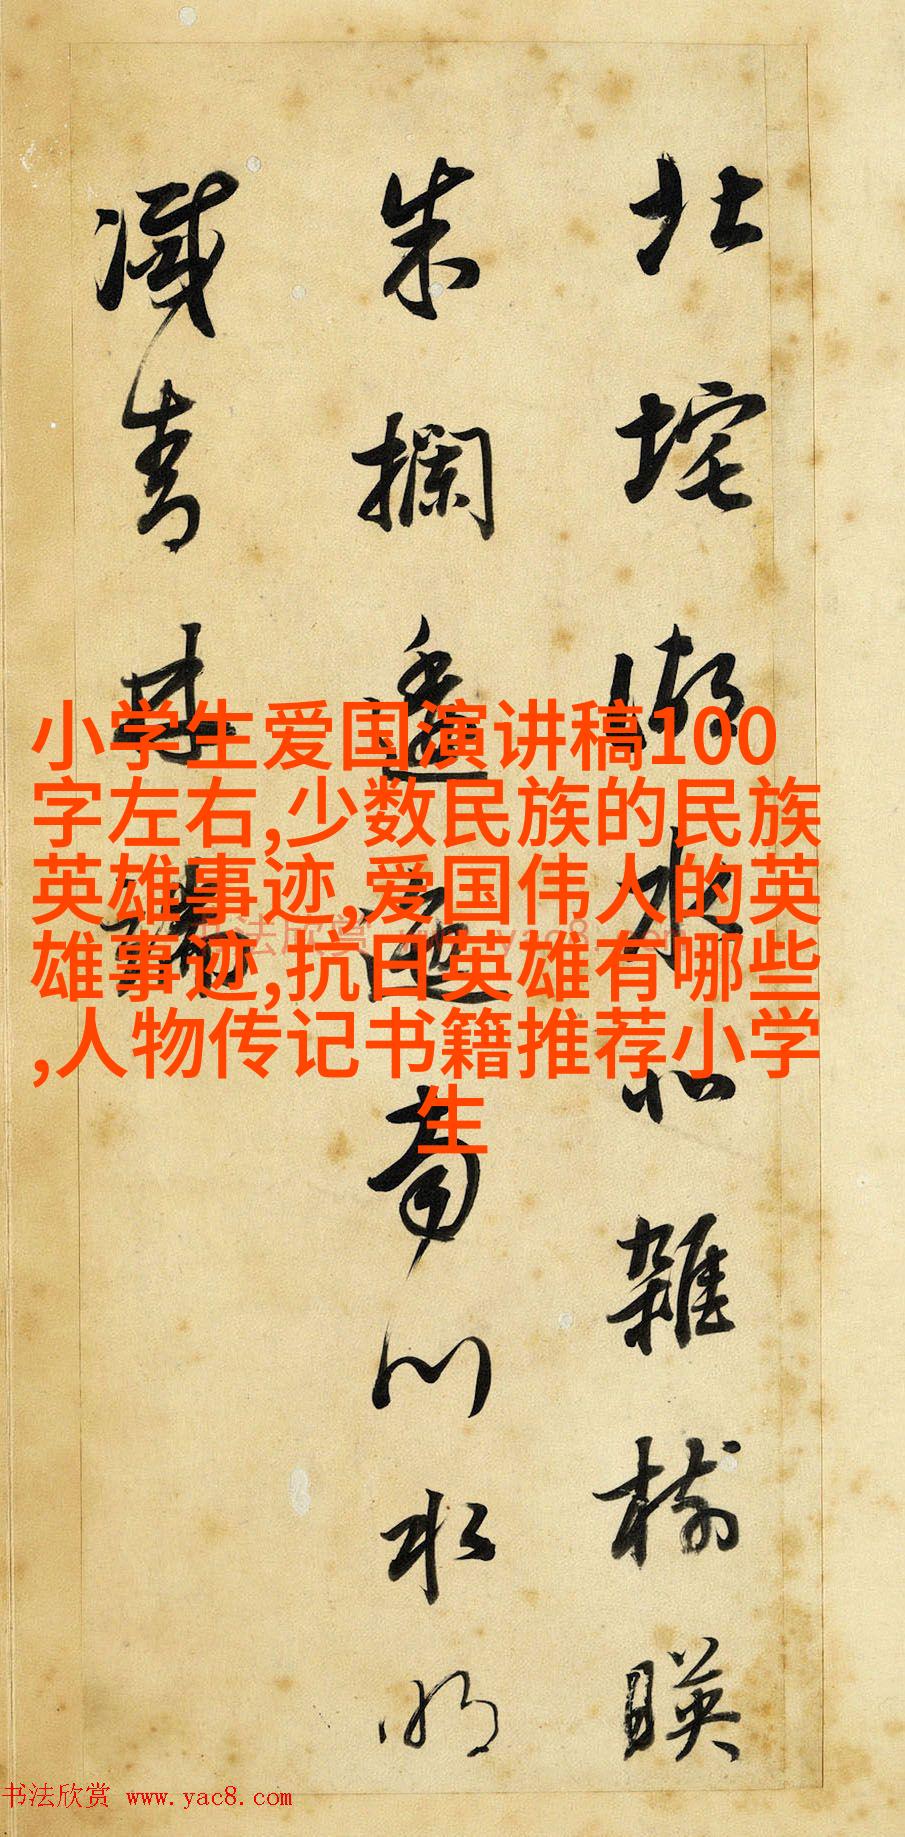 北垞湖水北雜樹暎
朱欄逶迤南川水明
滅青林端
小学生爱国演讲稿100
字左右,少数民族的民族
英雄事迹,爱国伟人的英
雄事迹,抗日英雄有哪些
,人物传记书籍推荐小学
生
书法欣赏 www.yac8.com
书法欣赏 www.yac8.com